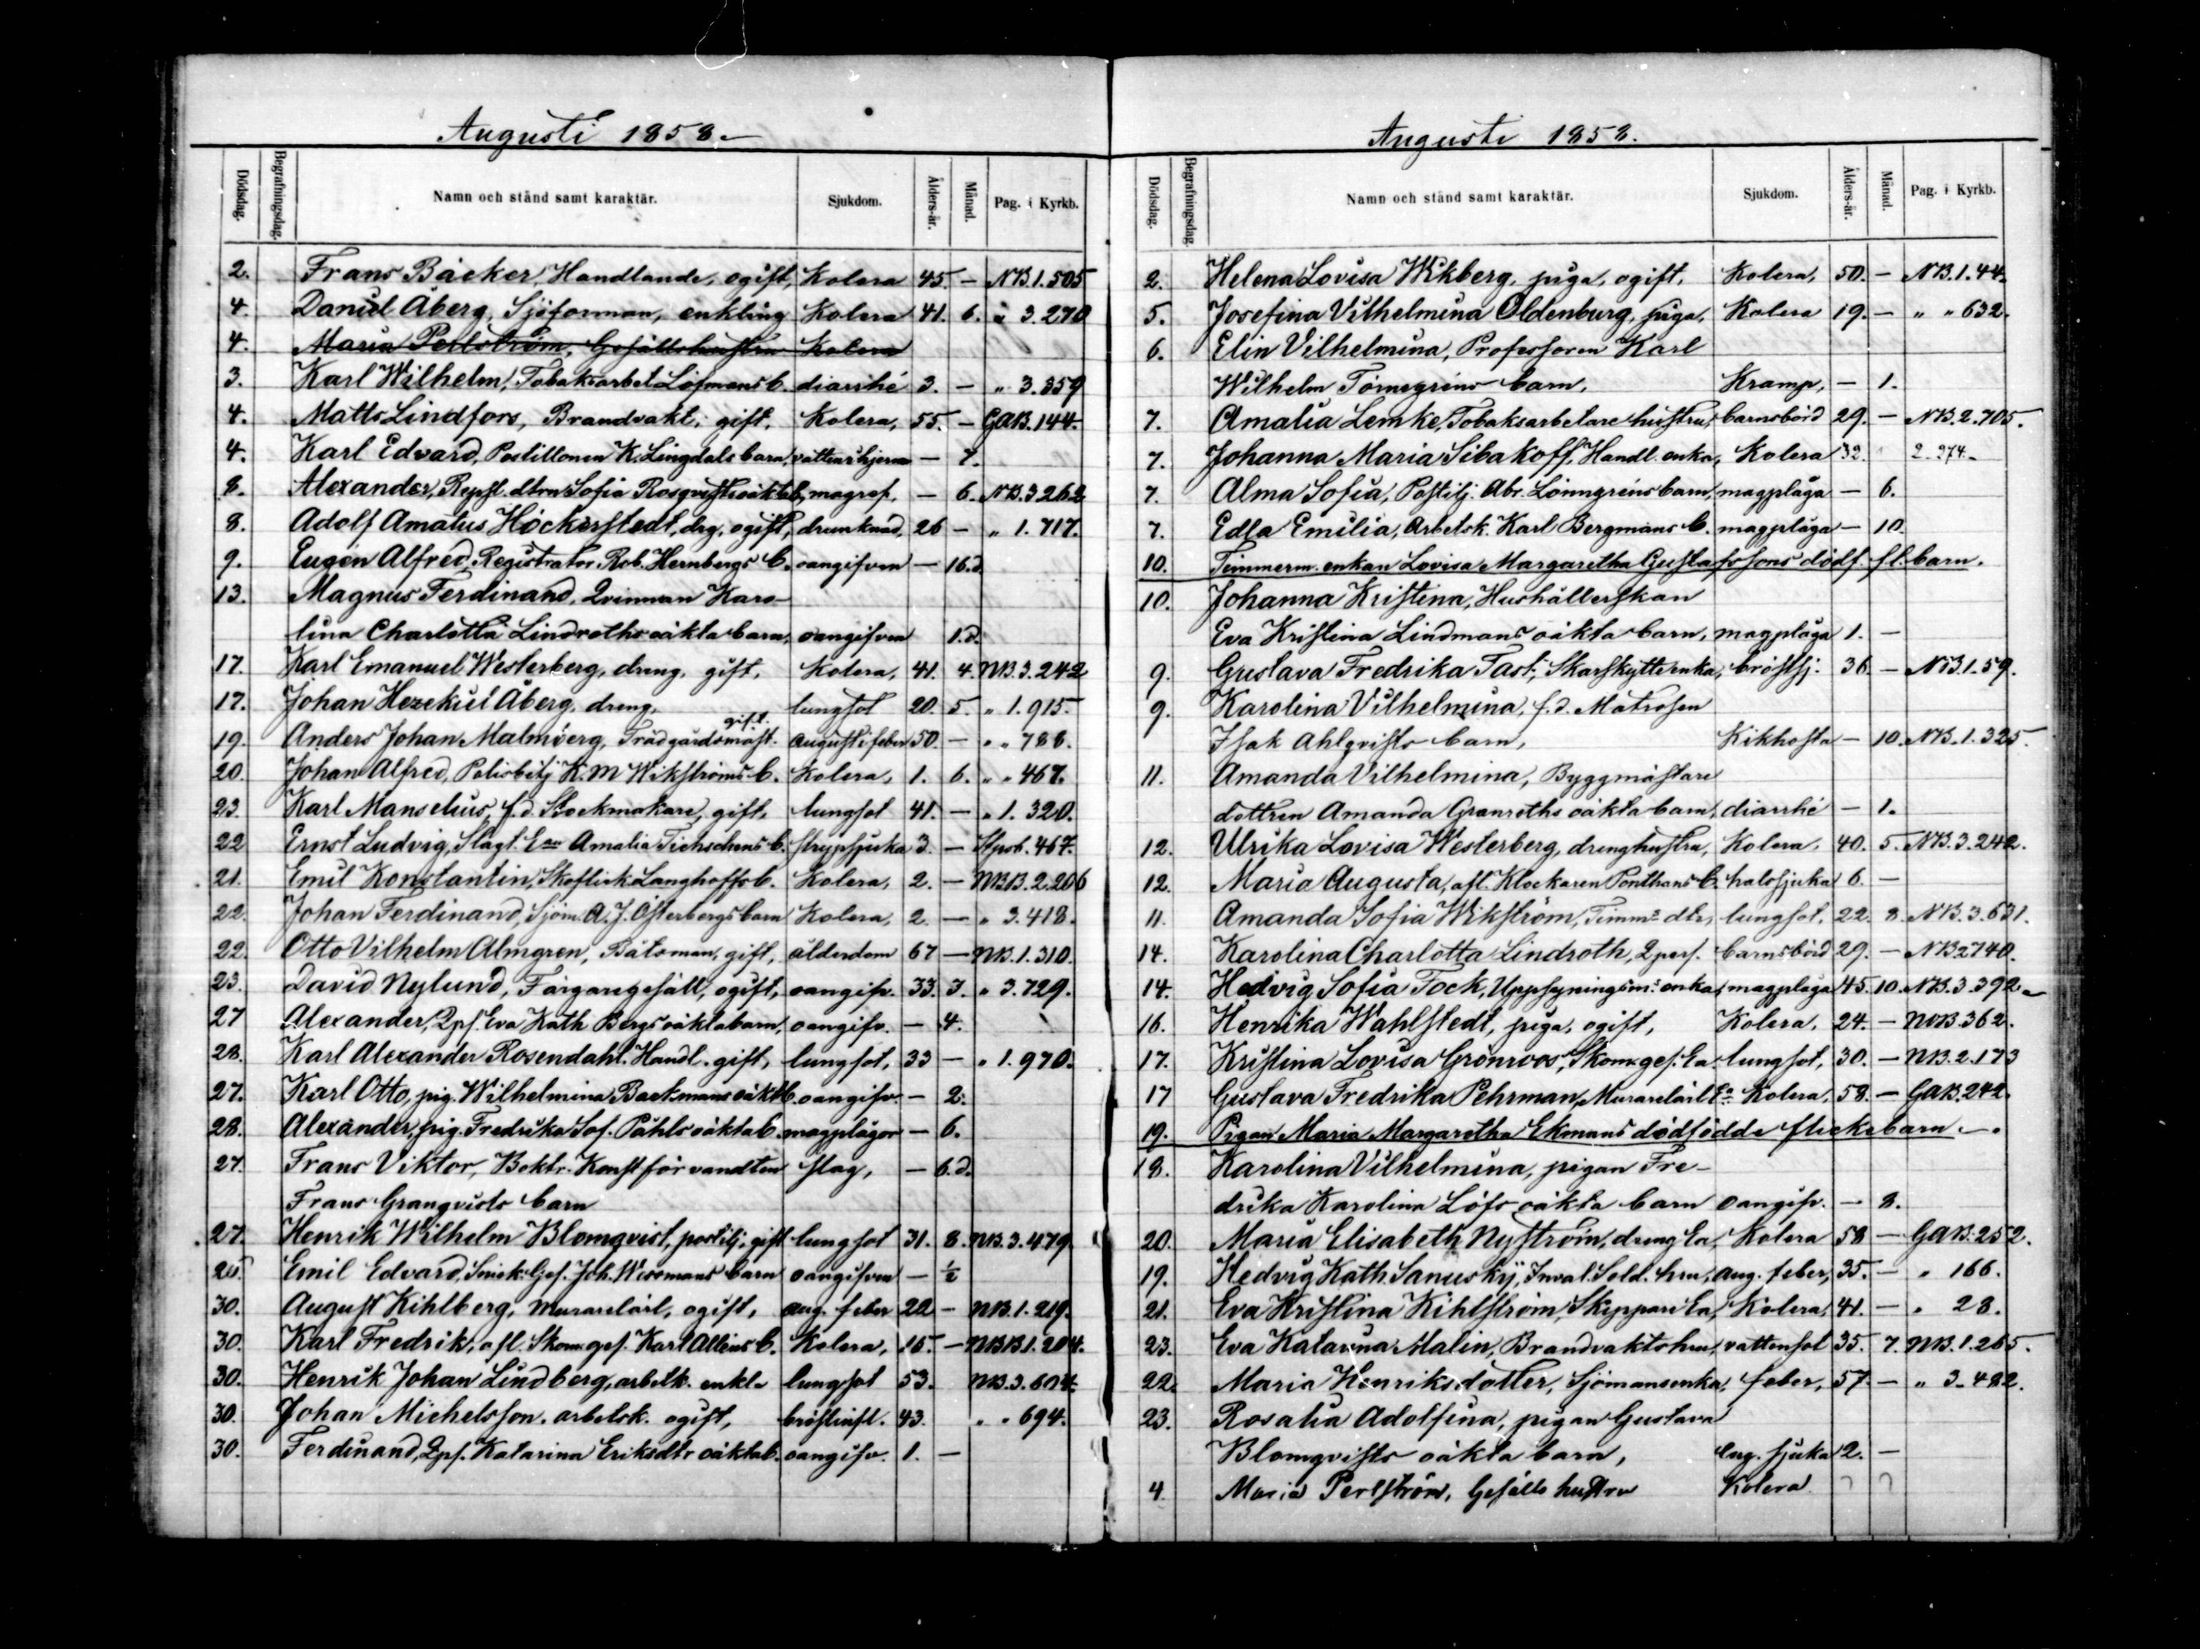 Augusti 1858.
Dödsdag. Begrafningsdag. Namn och stånd samt karaktär. Sjukdom. Ålders-år. Månad. Pag. i Kyrkb.
2. Frans Bäcker, Handlande, ogift, Kolera 45 — NB.1.505
4. Daniel Åberg, Sjöforman, enkling Kolera 41. 6. " 3.270
4. Maria Perlström, Gefälls hustru Kolera
3. Karl Wilhelm, Tobaksarbet. Löfmans b. diarrhé 3. — " 3.359
4. Matts Lindfors, Brandvakt, gift, Kolera, 55. — GAB.144.
4. Karl Edvard, Postillonen K. Lingdals barn, vattenihjerna — 7.
8. Alexander, Repsl. dtrn Sofia Rosqvists oäkta b, magref, — 6. NB.3.262
8. Adolf Amatus Höckerstedt, drg, ogift, drunknad, 26 — " 1.717.
9. Eugen Alfred, Registrator Rob. Hernbergs b. oangifven — 16.d.
13. Magnus Ferdinand, Qvinnan Karo-
lina Charlotta Lindroths oäkta barn, oangifven 1.d.
17. Karl Emanuel Westerberg, dreng, gift, Kolera, 41. 4. NB.3.242
17. Johan Hezekiel Åberg, dreng, lungsot 20. 5. " 1.915.
19. Anders Johan Malmberg, Trädgårdsmäst. gift. Augustifeber 50. — " " 788.
20. Johan Alfred, Polisbetj K. M Wikströms b. Kolera, 1. 6. " " 467.
23. Karl Manselius, f.d. Stockmakare, gift, lungsot 41. — " 1.320.
22 Ernst Ludvig, Slagt. Ean Amalia Tichschens b. strypsjuka 3. — Stpsb.467.
21. Emil Konstantin, Skoflick. Langhoffs b. Kolera, 2. — NBB.2.206
22. Johan Ferdinand, Sjöm. A. J. Österbergs barn Kolera, 2. — " 3.418.
22. Otto Vilhelm Almgren, Båtsman, gift, ålderdom 67 — NB.1.310.
23. David Nylund, Färgaregesäll, ogift, oangifv. 33. 3. " 3.729.
27 Alexander, Qpf. Eva Kath Bergs oäkta barn, oangifv. — 4.
28. Karl Alexander Rosendahl, Handl. gift, lungsot, 33 — " 1.970.
27. Karl Otto, pig. Wilhelmina Backmans oäkta b. oangifv. — 2.
28. Alexander, pig. Fredrika Sof. Påhls oäkta b. magplågor — 6.
27. Frans Viktor, Boktr. Konstförvandten slag, — 6.d.
Frans Granqvists barn
27. Henrik Wilhelm Blomqvist, postilj, gift lungsot 31. 8. NB.3.479.
Emil Edvard, Snick. Gef. Joh. Wessmans barn oangifven — ½
30. August Kihlberg, murarelärl, ogift, aug. feber 22 — NB.1.219.
30. Karl Fredrik, afl. Skom.gef. Karl Alleins b. Kolera, 15. — NBB.1.204.
30. Henrik Johan Lindberg, arbetk. enkl. lungsot 53. NB.3.604.
30. Johan Michelsson, arbetsk. ogift, bröstinfl. 43. " " 694.
30. Ferdinand, Qpf. Katarina Eriksdtr oäkta b. oangifv. 1. —
Augusti 1858.
Dödsdag. Begrafningsdag Namn och stånd samt karaktär. Sjukdom. Ålders-år. Månad. Pag. i Kyrkb.
2. Helena Lovisa Wikberg, piga, ogift, Kolera, 50. — NB.1.44.
5. Josefina Vilhelmina Oldenburg, piga, Kolera 19. — " " 632.
6. Elin Vilhelmina, Professoren Karl
Wilhelm Törnegrens barn, Kramp, — 1.
7. Amalia Lemke, Tobaksarbetare hustru, barnsbörd 29. — NB.2.705.
7. Johanna Maria Sibakoff, Handl. enka, Kolera 32. 2.274.
7. Alma Sofia, Postilj. Abr. Lönngréns barn, magplåga — 6.
7. Edla Emilia, Arbetsk. Karl Bergmans b. magplåga — 10.
10. Timmerm. enkan Lovisa Margaretha Gustafssons dödf. fl. barn.
10. Johanna Kristina, Hushållerskan
Eva Kristina Lindmans oäkta barn, magplåga 1. —
9. Gustava Fredrika Tast, Skarfskytt enka, bröstsj: 36. — NB.1.59.
9. Karolina Vilhelmina, f.d. Matrosen
Isak Ahlqvists barn, Kikhosta — 10. NB.1.325.
11. Amanda Vilhelmina, Byggmästare
dottren Amanda Granroths oäkta barn, diarrhé — 1.
12. Ulrika Lovisa Westerberg, drenghustru, Kolera, 40. 5. NB.3.242.
12. Maria Augusta, afl. Klockaren Ponthans b. halssjuka 6. —
11. Amanda Sofia Wikström, Timms dtr, lungsot, 22. 8. NB.3.631.
14. Karolina Charlotta Lindroth, Qpers. barnsbörd 29. — NB.2.740.
14. Hedvig Sofia Tock, Uppsyningsms enka, magplåga 45. 10. NB.3.392.
16. Henrika Wahlstedt, piga, ogift, Kolera, 24. — NB.362.
17. Kristina Lovisa Grönroos, Skom.gef. Ea lungsot, 30. — NB.2.173
17 Gustava Fredrika Pehrman, Murarelärl Ea Kolera, 58. — GAB.242.
19. Pigan Maria Margaretha Ekmans dödfödde flickebarn.
18. Karolina Vilhelmina, pigan Fre-
drika Karolina Löfs oäkta barn oangifv. — 8.
20. Maria Elisabeth Nyström, dreng Ea, Kolera 58 — GAB.252.
19. Hedvig Kath Sanuskij, Inval. Sold. hru, aug. feber, 35. — " 166.
21. Eva Kristina Kihlström, Skeppare Ea, Kolera, 41. — " 28.
23. Eva Katarina Malin, Brandvaktshru, vattensot 35. 7. NB.1.265.
22. Maria Henriksdotter, Sjömansenka, feber, 57. — " 3.422.
23. Rosalia Adolfina, pigan Gustava
Blomqvists oäkta barn, eng. sjuka 2. —
4 Maria Perlström, Gefälls hustru Kolera ? ?